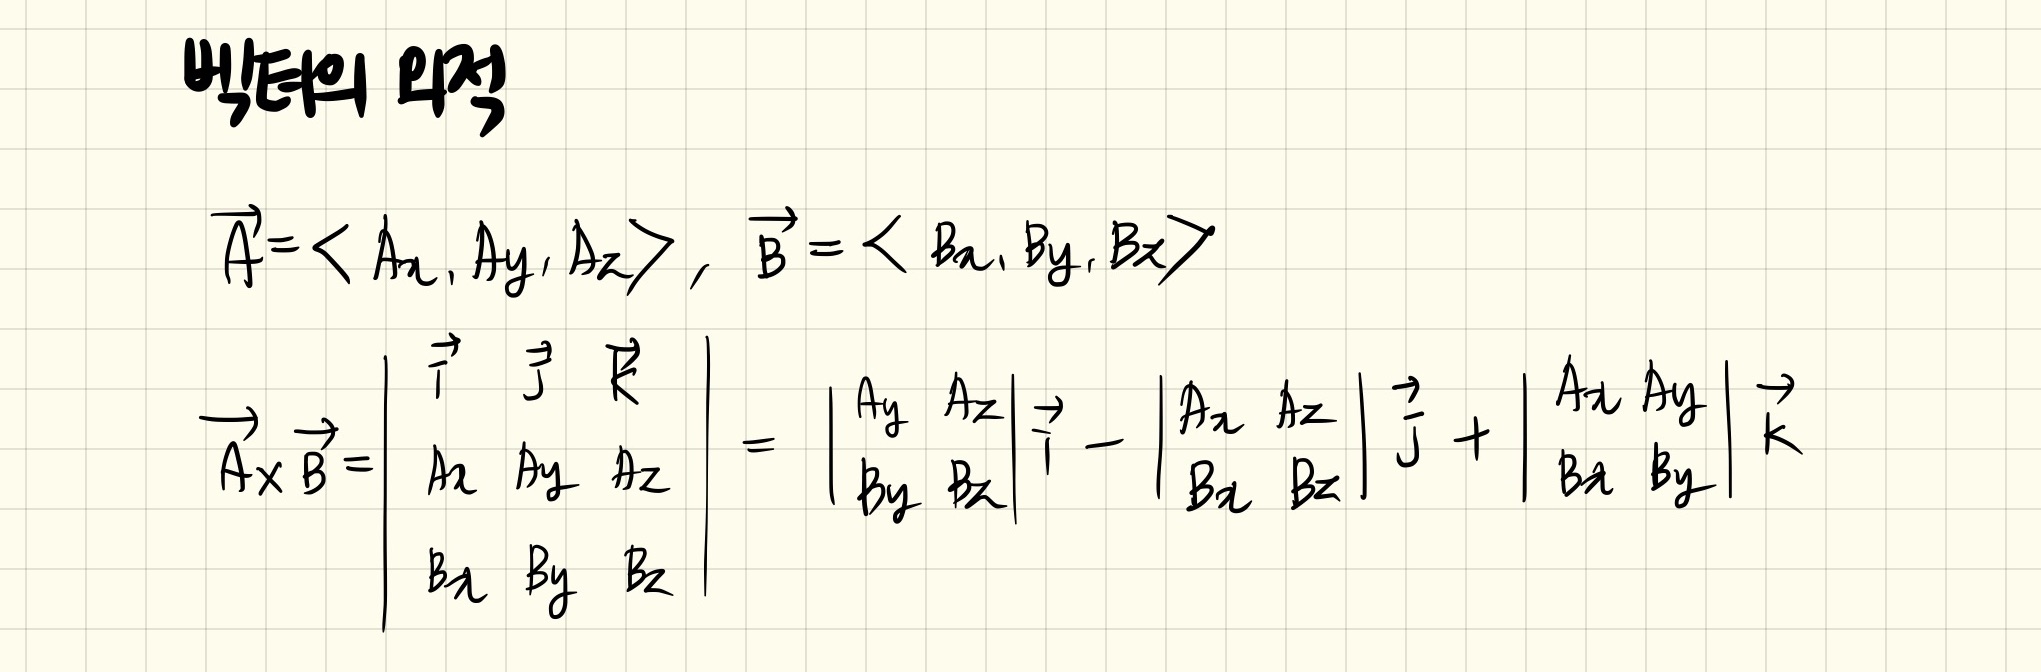 벡터의 외적
$\vec{A} = < A_x, A_y, A_z >, \vec{B} = < B_x, B_y, B_z >$
$\vec{A} \times \vec{B} = \begin{vmatrix} \vec{i} & \vec{j} & \vec{k} \\ A_x & A_y & A_z \\ B_x & B_y & B_z \end{vmatrix} = \begin{vmatrix} A_y & A_z \\ B_y & B_z \end{vmatrix} \vec{i} - \begin{vmatrix} A_x & A_z \\ B_x & B_z \end{vmatrix} \vec{j} + \begin{vmatrix} A_x & A_y \\ B_x & B_y \end{vmatrix} \vec{k}$